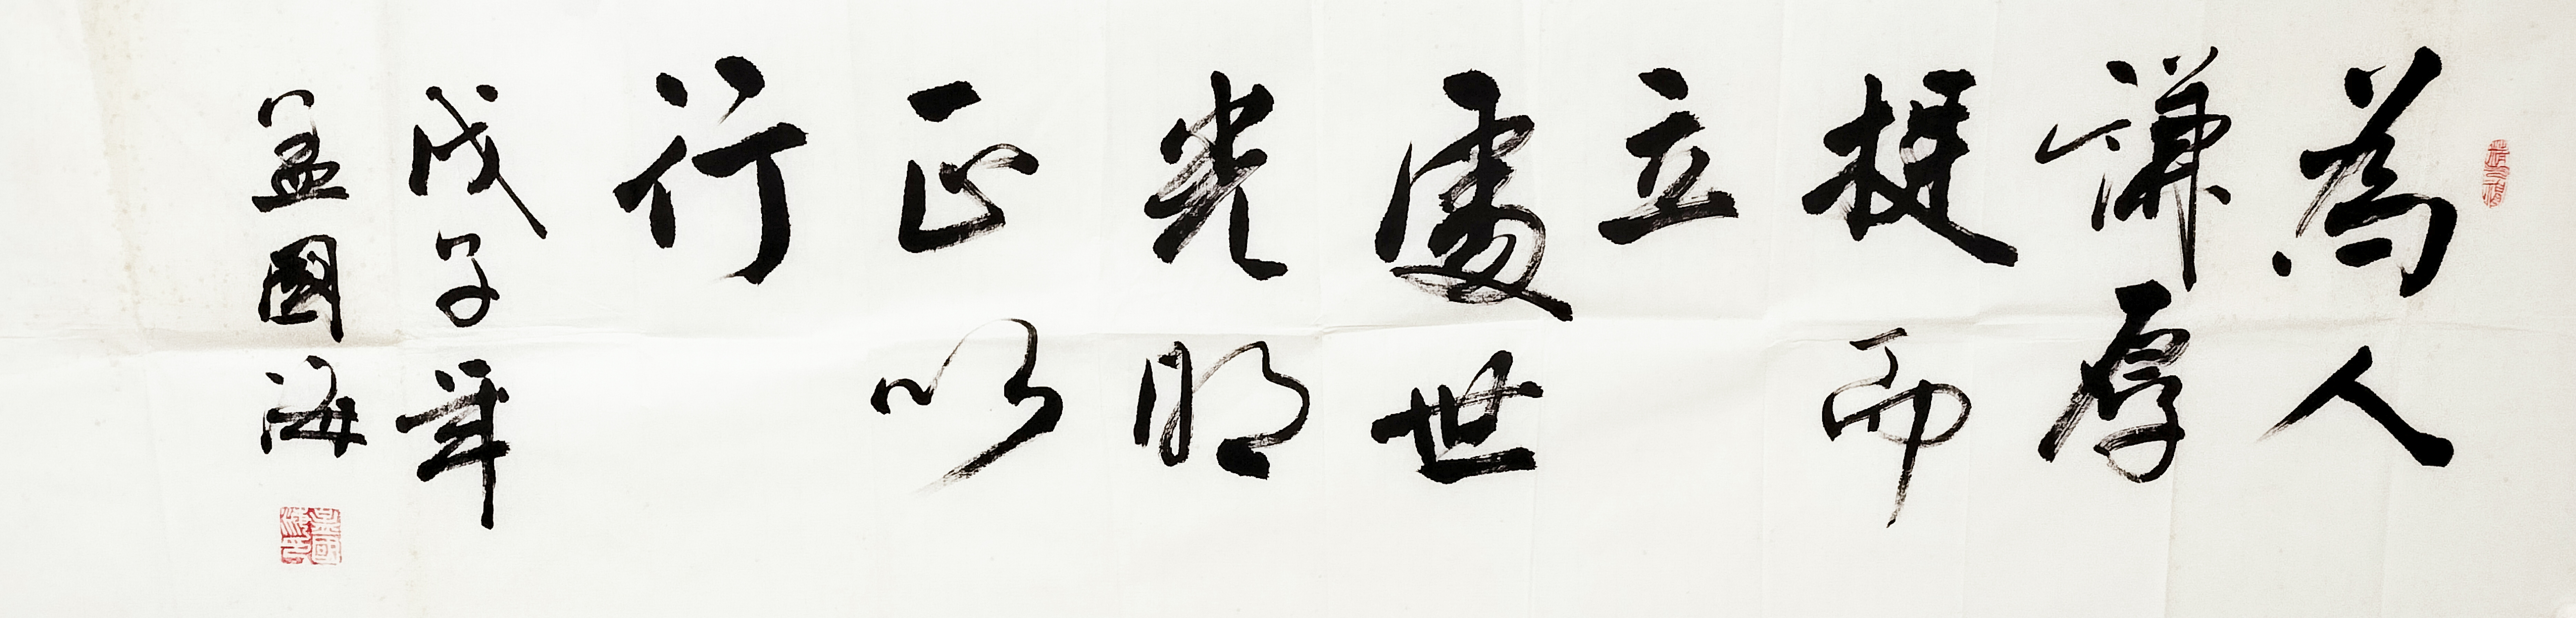 為人
謙厚
挺而
立
處世
光明
正以
行
戊子年
盖國海